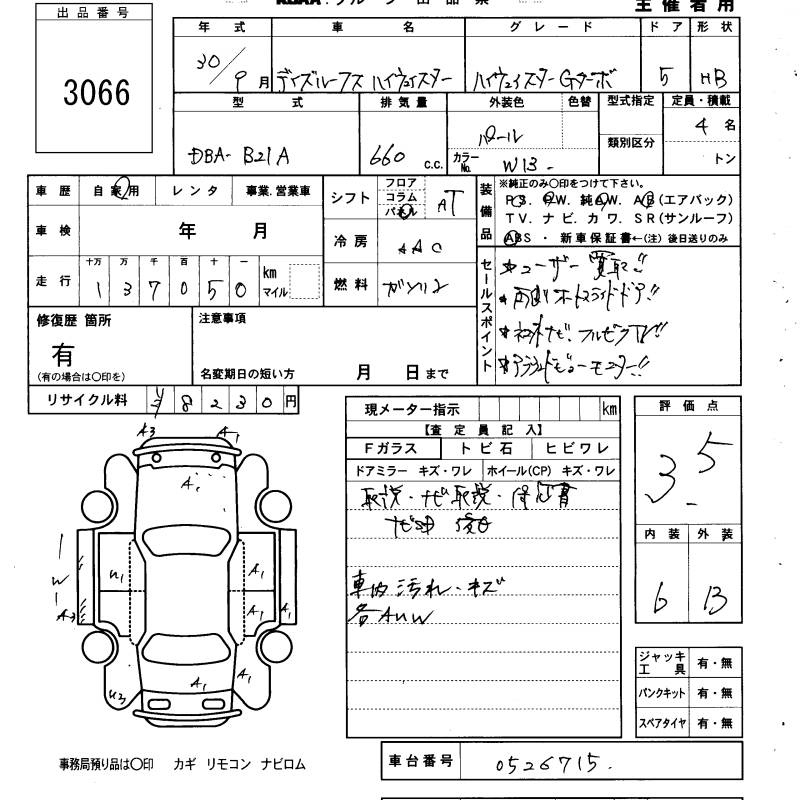 出品番号
3066
主催者用
年式 車名 グレード ドア 形状
30/9月 デイズルークス ハイウェイスター ハイウェイスターGターボ 5 HB
型式 排気量 外装色 色替 型式指定 定員・積載
DBA- B21A 660 c.c. パール 類別区分 4名
カラーNo. W13- トン
車歴 自家用 レンタ 事業.営業車
シフト フロア コラム パネル AT
車検 年 月
冷房 AAC
走行 十万 万 千 百 十 一
137050 km マイル
燃料 ガソリン
装備品 ※純正のみ〇印をつけて下さい。
PS. PW. 純AW. AB(エアバック)
TV. ナビ. カワ. SR(サンルーフ)
ABS ・ 新車保証書←(注) 後日送りのみ
セールスポイント
★ユーザー買取!!
★両側オートスライドドア!!
★ナビ.フルセグTV!!
★アラウンドビューモニター!!
修復歴 箇所
有
(有の場合は〇印を)
注意事項
名変期日の短い方 月 日まで
リサイクル料 8230円
現メーター指示 km
【査定員記入】
Fガラス トビ石 ヒビワレ
ドアミラー キズ・ワレ ホイール(CP) キズ・ワレ
取説・ナビ取説・保証書
車内汚れ・キズ
各AUW
評価点
3.5
内装 外装
6 B
A3 A1
A1
W
A3
U1 A1
A1 A1
A1 A1
U3
ジャッキ工具 有・無
パンクキット 有・無
スペアタイヤ 有・無
事務局預り品は〇印 カギ リモコン ナビロム
車台番号 0526715.